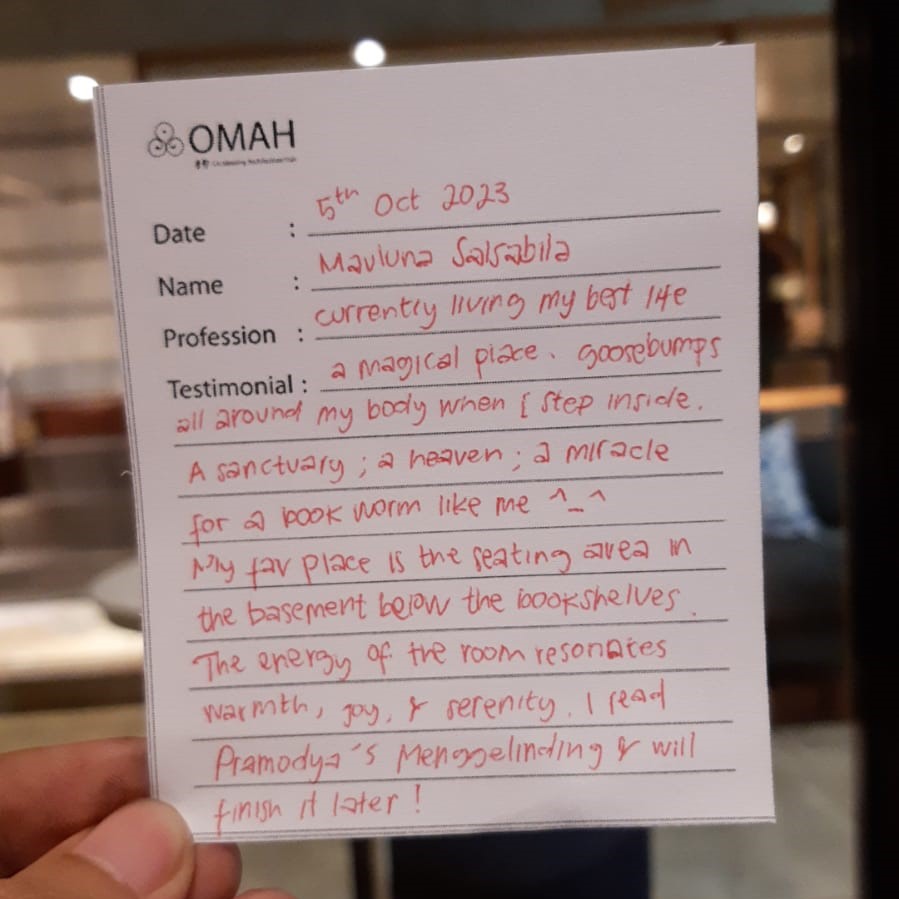 OMAH
Date : 5th Oct 2023
Name : Mavluna Salsabila
Profession : currently living my best life
Testimonial : a magical place. goosebumps
all around my body when I step inside.
A sanctuary ; a heaven ; a miracle
for a book worm like me ^_^
My fav place is the seating area in
the basement below the bookshelves.
The energy of the room resonates
warmth, joy, & serenity. I read
Pramodya's Menggelinding & will
finish it later!